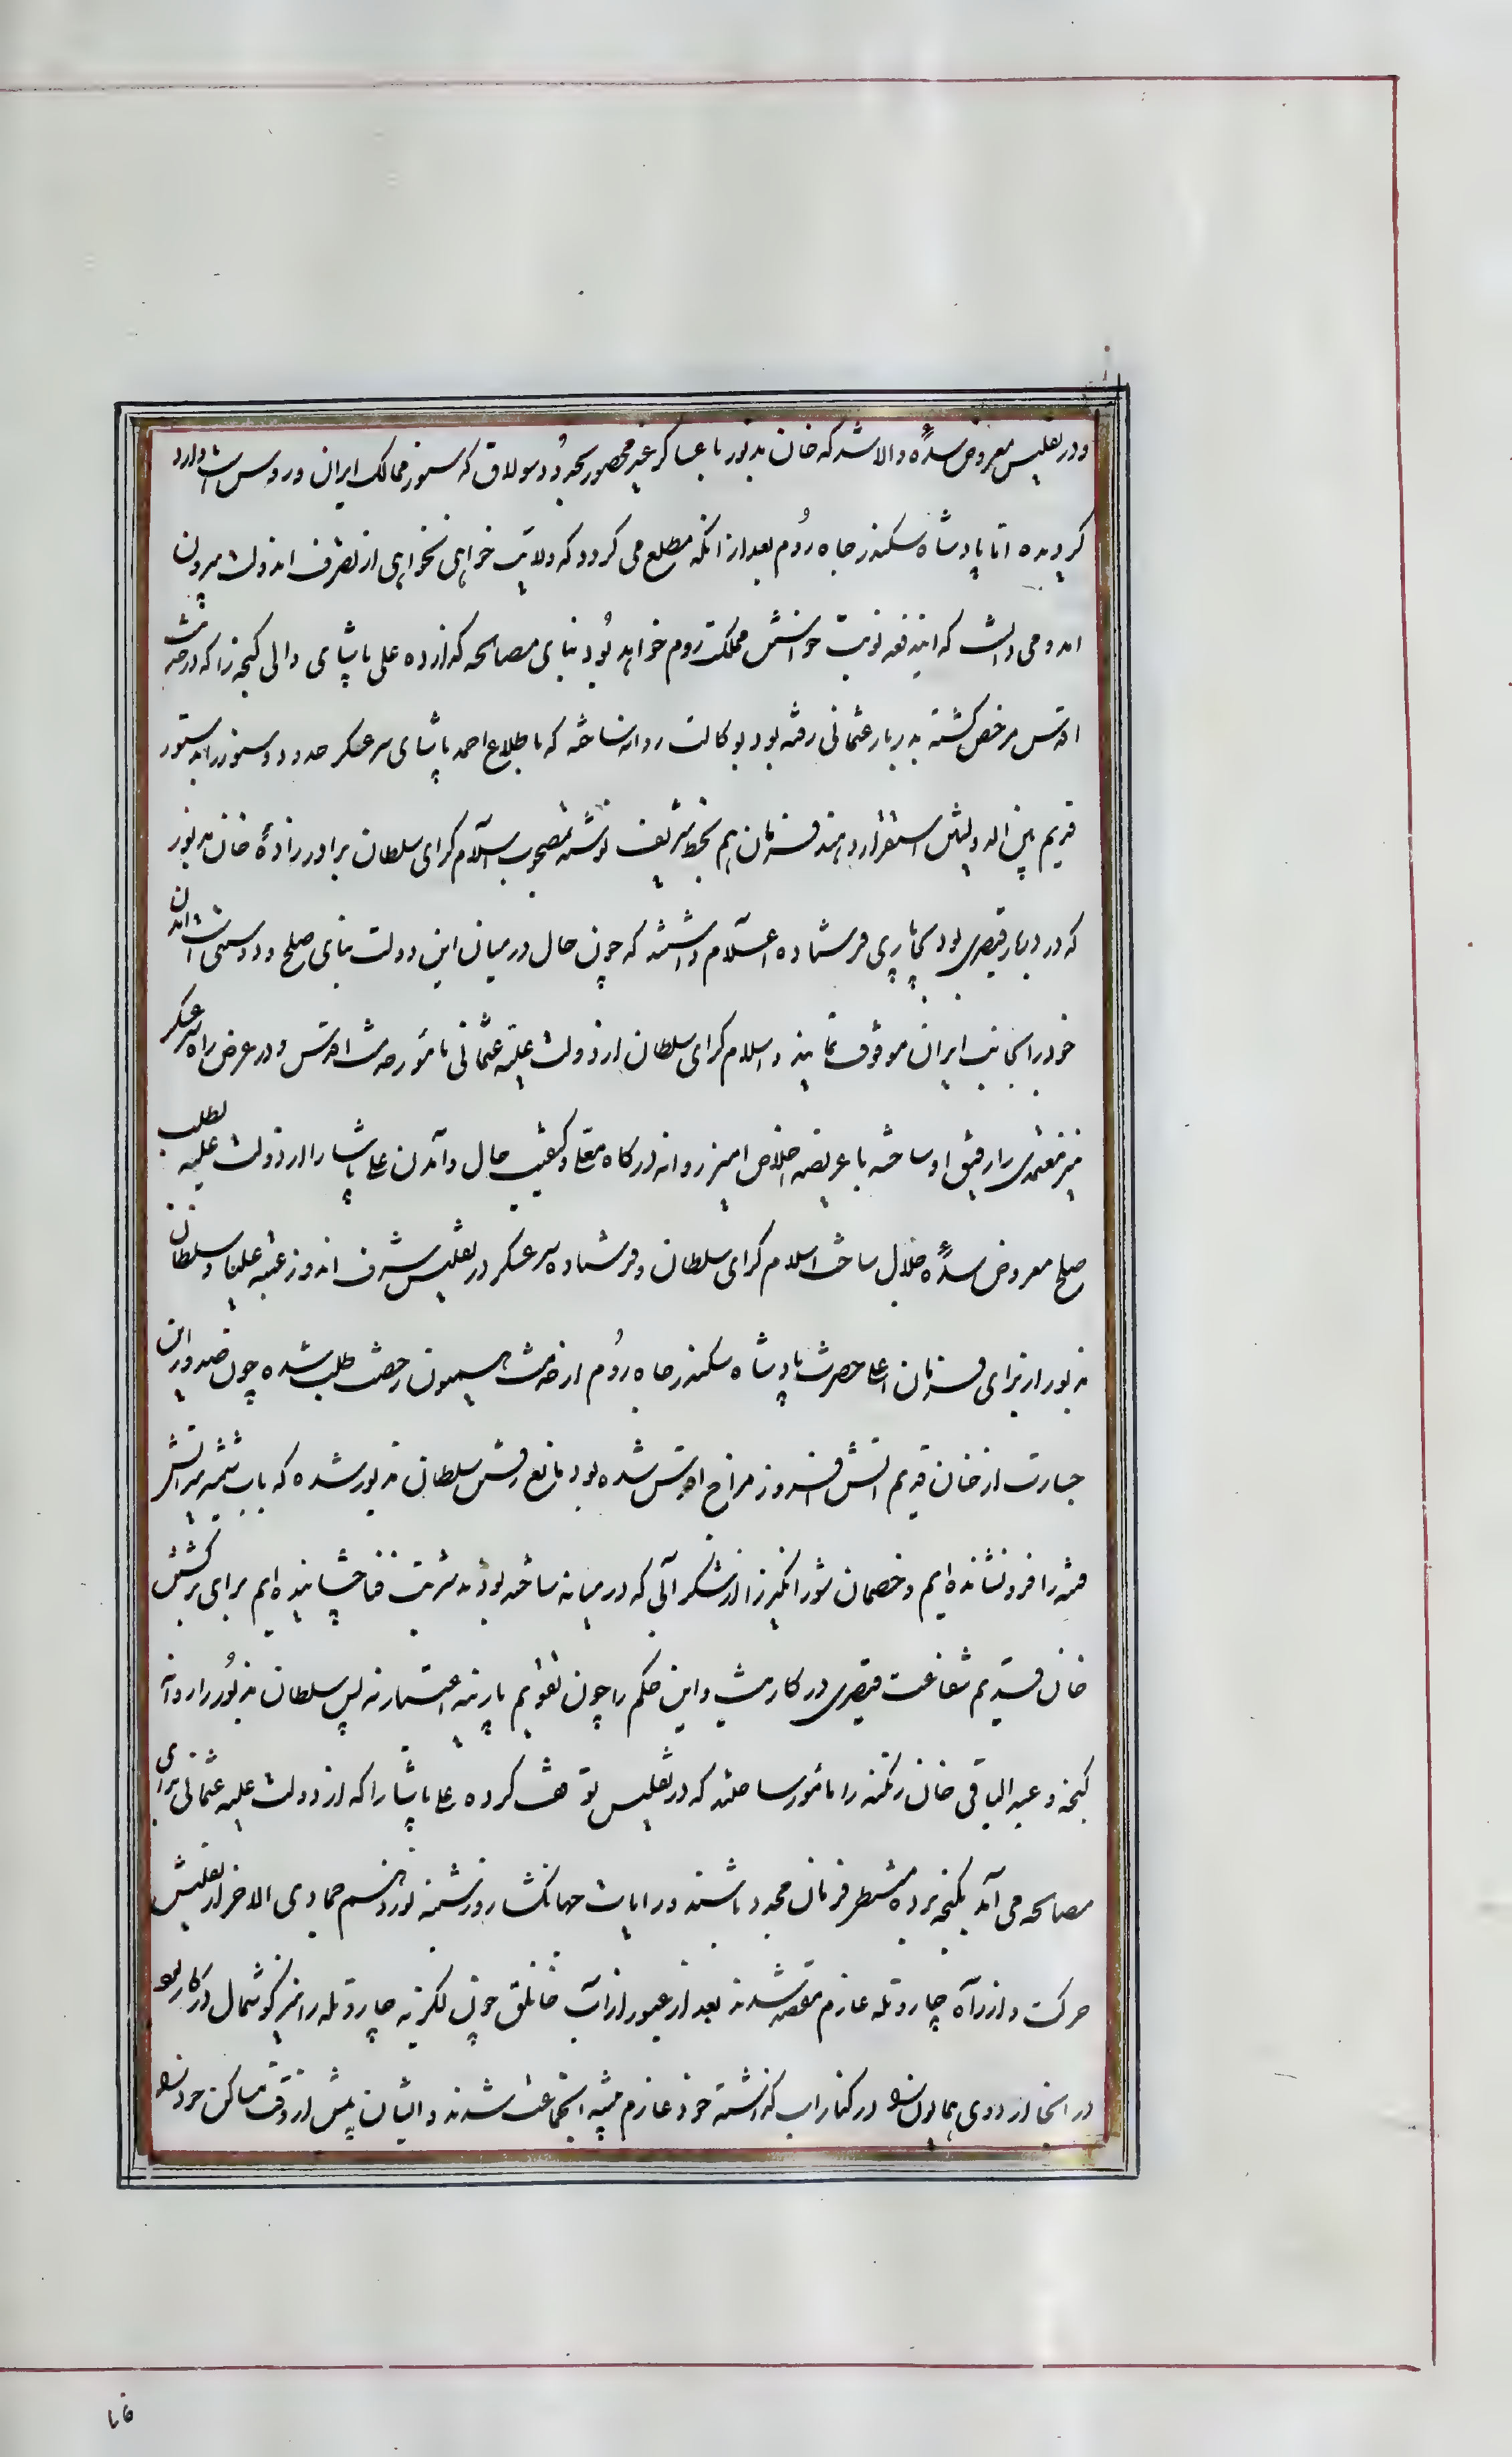 و در تفلیس معروض سدهٔ والا شد که خان مذبور با عساکر غیر محصور بحدود سولاق که سنور ممالک ایران و روس است وارد
گردیده اما پادشاه سکندر جاه رُوم بعد از آنکه مطلع می کردد که ولایت خواهی نخواهی از تصرف اندولت بیرون
آمد و می دانست که ایندفعه نوبت خواهش مملکت روم خواهد بُود بنای مصالحه گذارده علی پاشای والی کنجه را که از خدمت
اقدس مرخص گشته بدربار عثمانی رفته بود بوکالت روانه ساخته که باطلاع احمد پاشای سرعسکر حدود و سنور را بدستور
قدیم بین الدولتین استقرار دهند و فرمان هم بخط شریف نوشته بمصحوب اسلام کرای سلطان برادر زادهٔ خان مذبور
که در دربار قیصری بود بچاپاری فرستاده اعلام داشتند که چون حال در میان این دولت بنای صلح و دوستی است آمدن
خود را بجانب ایران موقوف نمایند و اسلام کرای سلطان از دولت علیه عثمانی مأمور خدمت اقدس و در عرض راه سرعسکر
نیز معتمدی را رفیق او ساخته با عریضه اخلاص امیز روانه درکاه معلی و کیفیت حال و آمدن علی پاشا را از دولت علیه بطلب
صلح معروض سدهٔ جلال ساخت اسلام کرای سلطان و فرستاده سرعسکر در تفلیس شرف اندوز عتبه علیا و سلطان
مذبور از برای فرمان اعلیحضرت پادشاه سکندر جاه رُوم از خدمت همیون رخصت طلب شده چون صدور این
جسارت از خان قدیم اتش افروز مزاج اقدس شده بود مانع رفتن سلطان مذبور شده که باب شمشیر اتش
فتنه را فرو نشانده ایم و خصمان شور انگیز را از شکر آبی که در میانه ساخته بودند شربت فنا چشانیده ایم برای برکشتن
خان قدیم شفاعت قیصری در کار نیست و این حکم را چون تقویم پارینه اعتبار نه پس سلطان مذبُور را روانه
کنجه و عبدالباقی خان زنکنه را مأمور ساختند که در تفلیس توقف کرده علی پاشا را که از دولت علیه عثمانی برای
مصالحه می آمد بکنجه برده منتظر فرمان مجدد باشند و رایات جهانکشا روز شنبه نوزدهم جمادی الاخر از تفلیس
حرکت و از راه چار و تله عازم مقصد شدند بعد از عبور از آب قانلق چون لکزیه چار و تله را نیز کوشمال در کار بود
در انجا اردوی همایون را در کنار اب گذاشته خود عازم تنبیه انجماعت شدند و ایشان پیش از وقت مساکن خود را